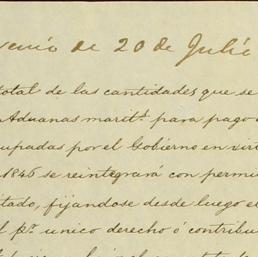 venio de 20 de Julio
total de las cantidades que se
Aduanas maritˢ para pago
upadas por el Gobierno en virt
1846 se reintegrará con permi
tado, fijandose desde luego e
l pʳ unico derecho ó contribu